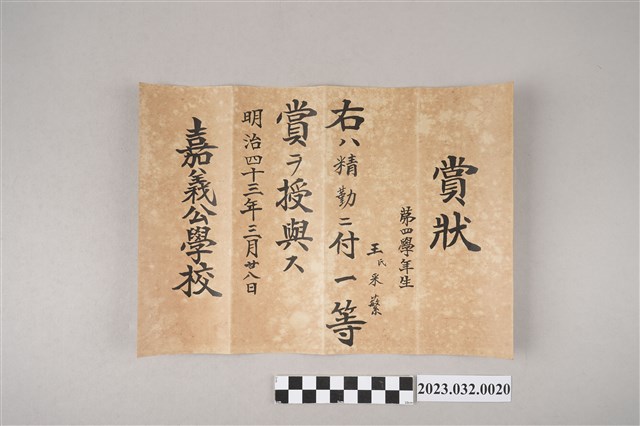 賞狀
第四學年生
王氏采蘩
右ハ精勤ニ付一等
賞ヲ授與ス
明治四十三年三月廿八日
嘉義公學校
2023.032.0020